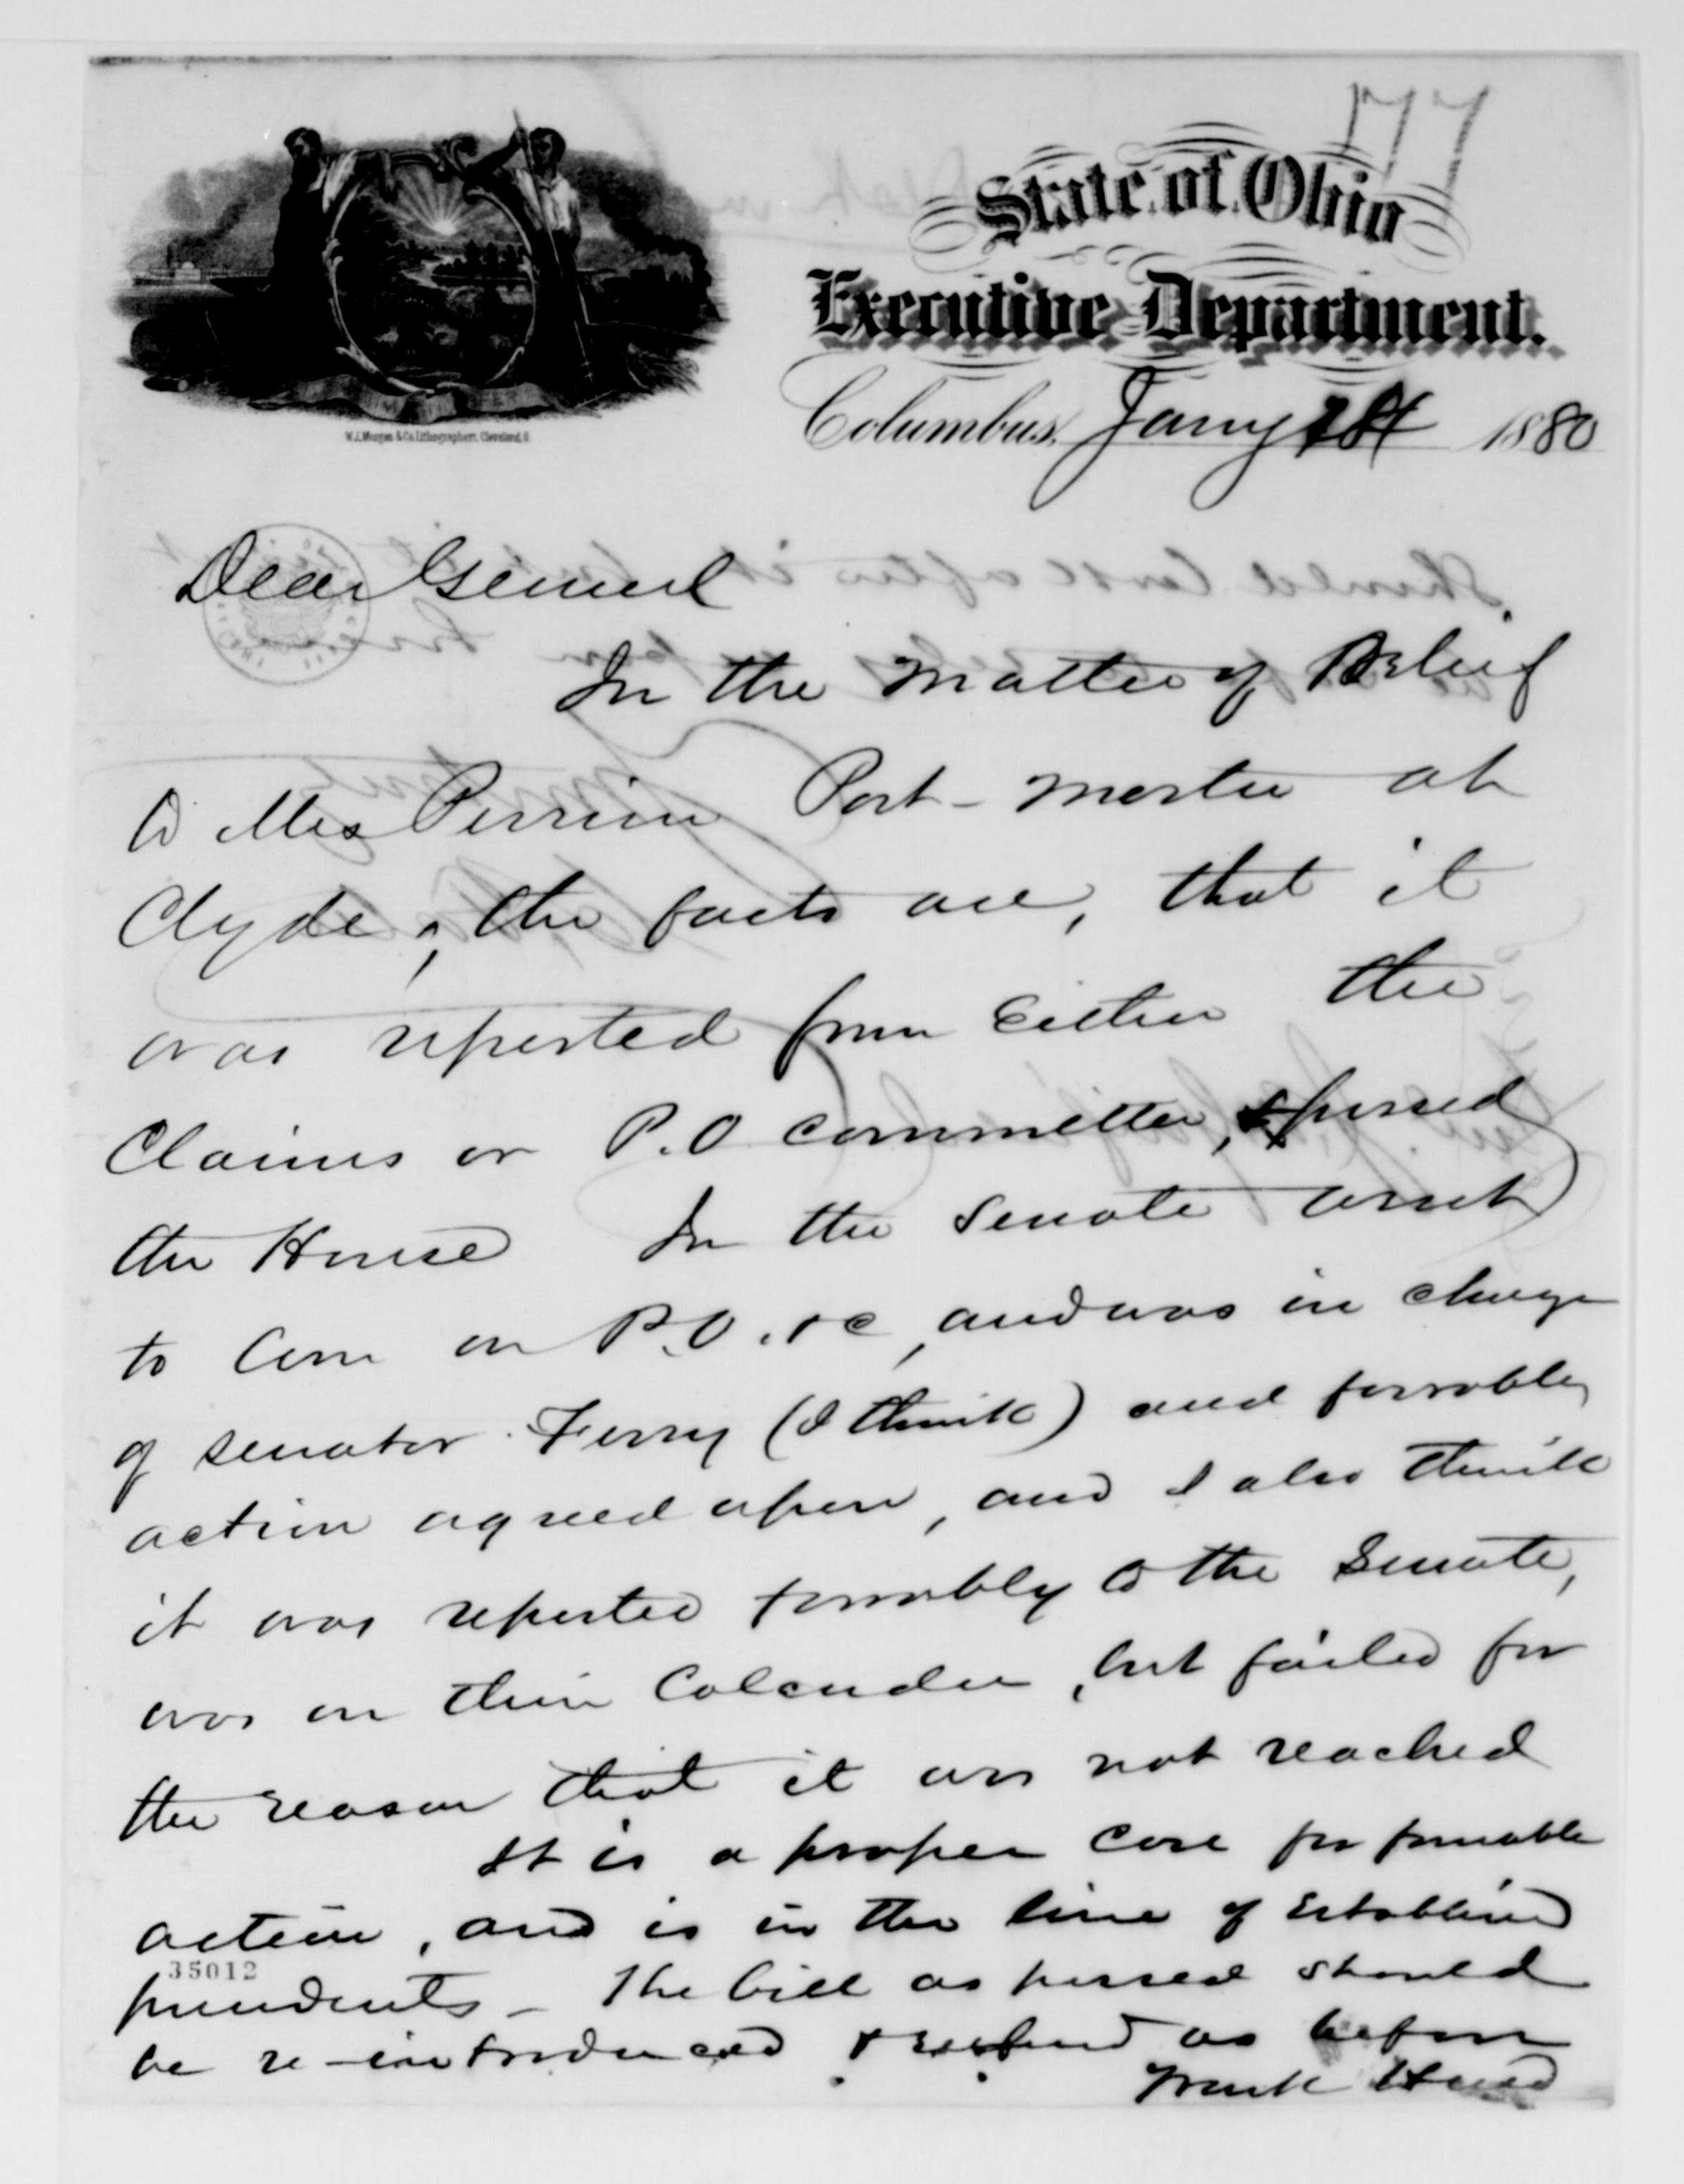 77
State of Ohio
Executive Department.
W.J. Morgan & Co. Lithographers, Cleveland, O.
Columbus, Jany 1880
Dear General
In the matter of Relief
to Mrs Perrin Post-master at
Clyde, the facts are, that it
was reported from Either the
Claims or P.O committee, & passed
the House In the Senate went
to Com on P.O. &c, and was in charge
of senator Ferry (I think) and forvoble
action agreed upon, and I also think
it was reported forvobly to the Senate,
was on their Calender, but failed for
the reason that it was not reached
It is a proper case for forvoble
action, and is in the line of Established
35012
precedents - The bill as passed should
be re-introduced & as before
Frank Hurd